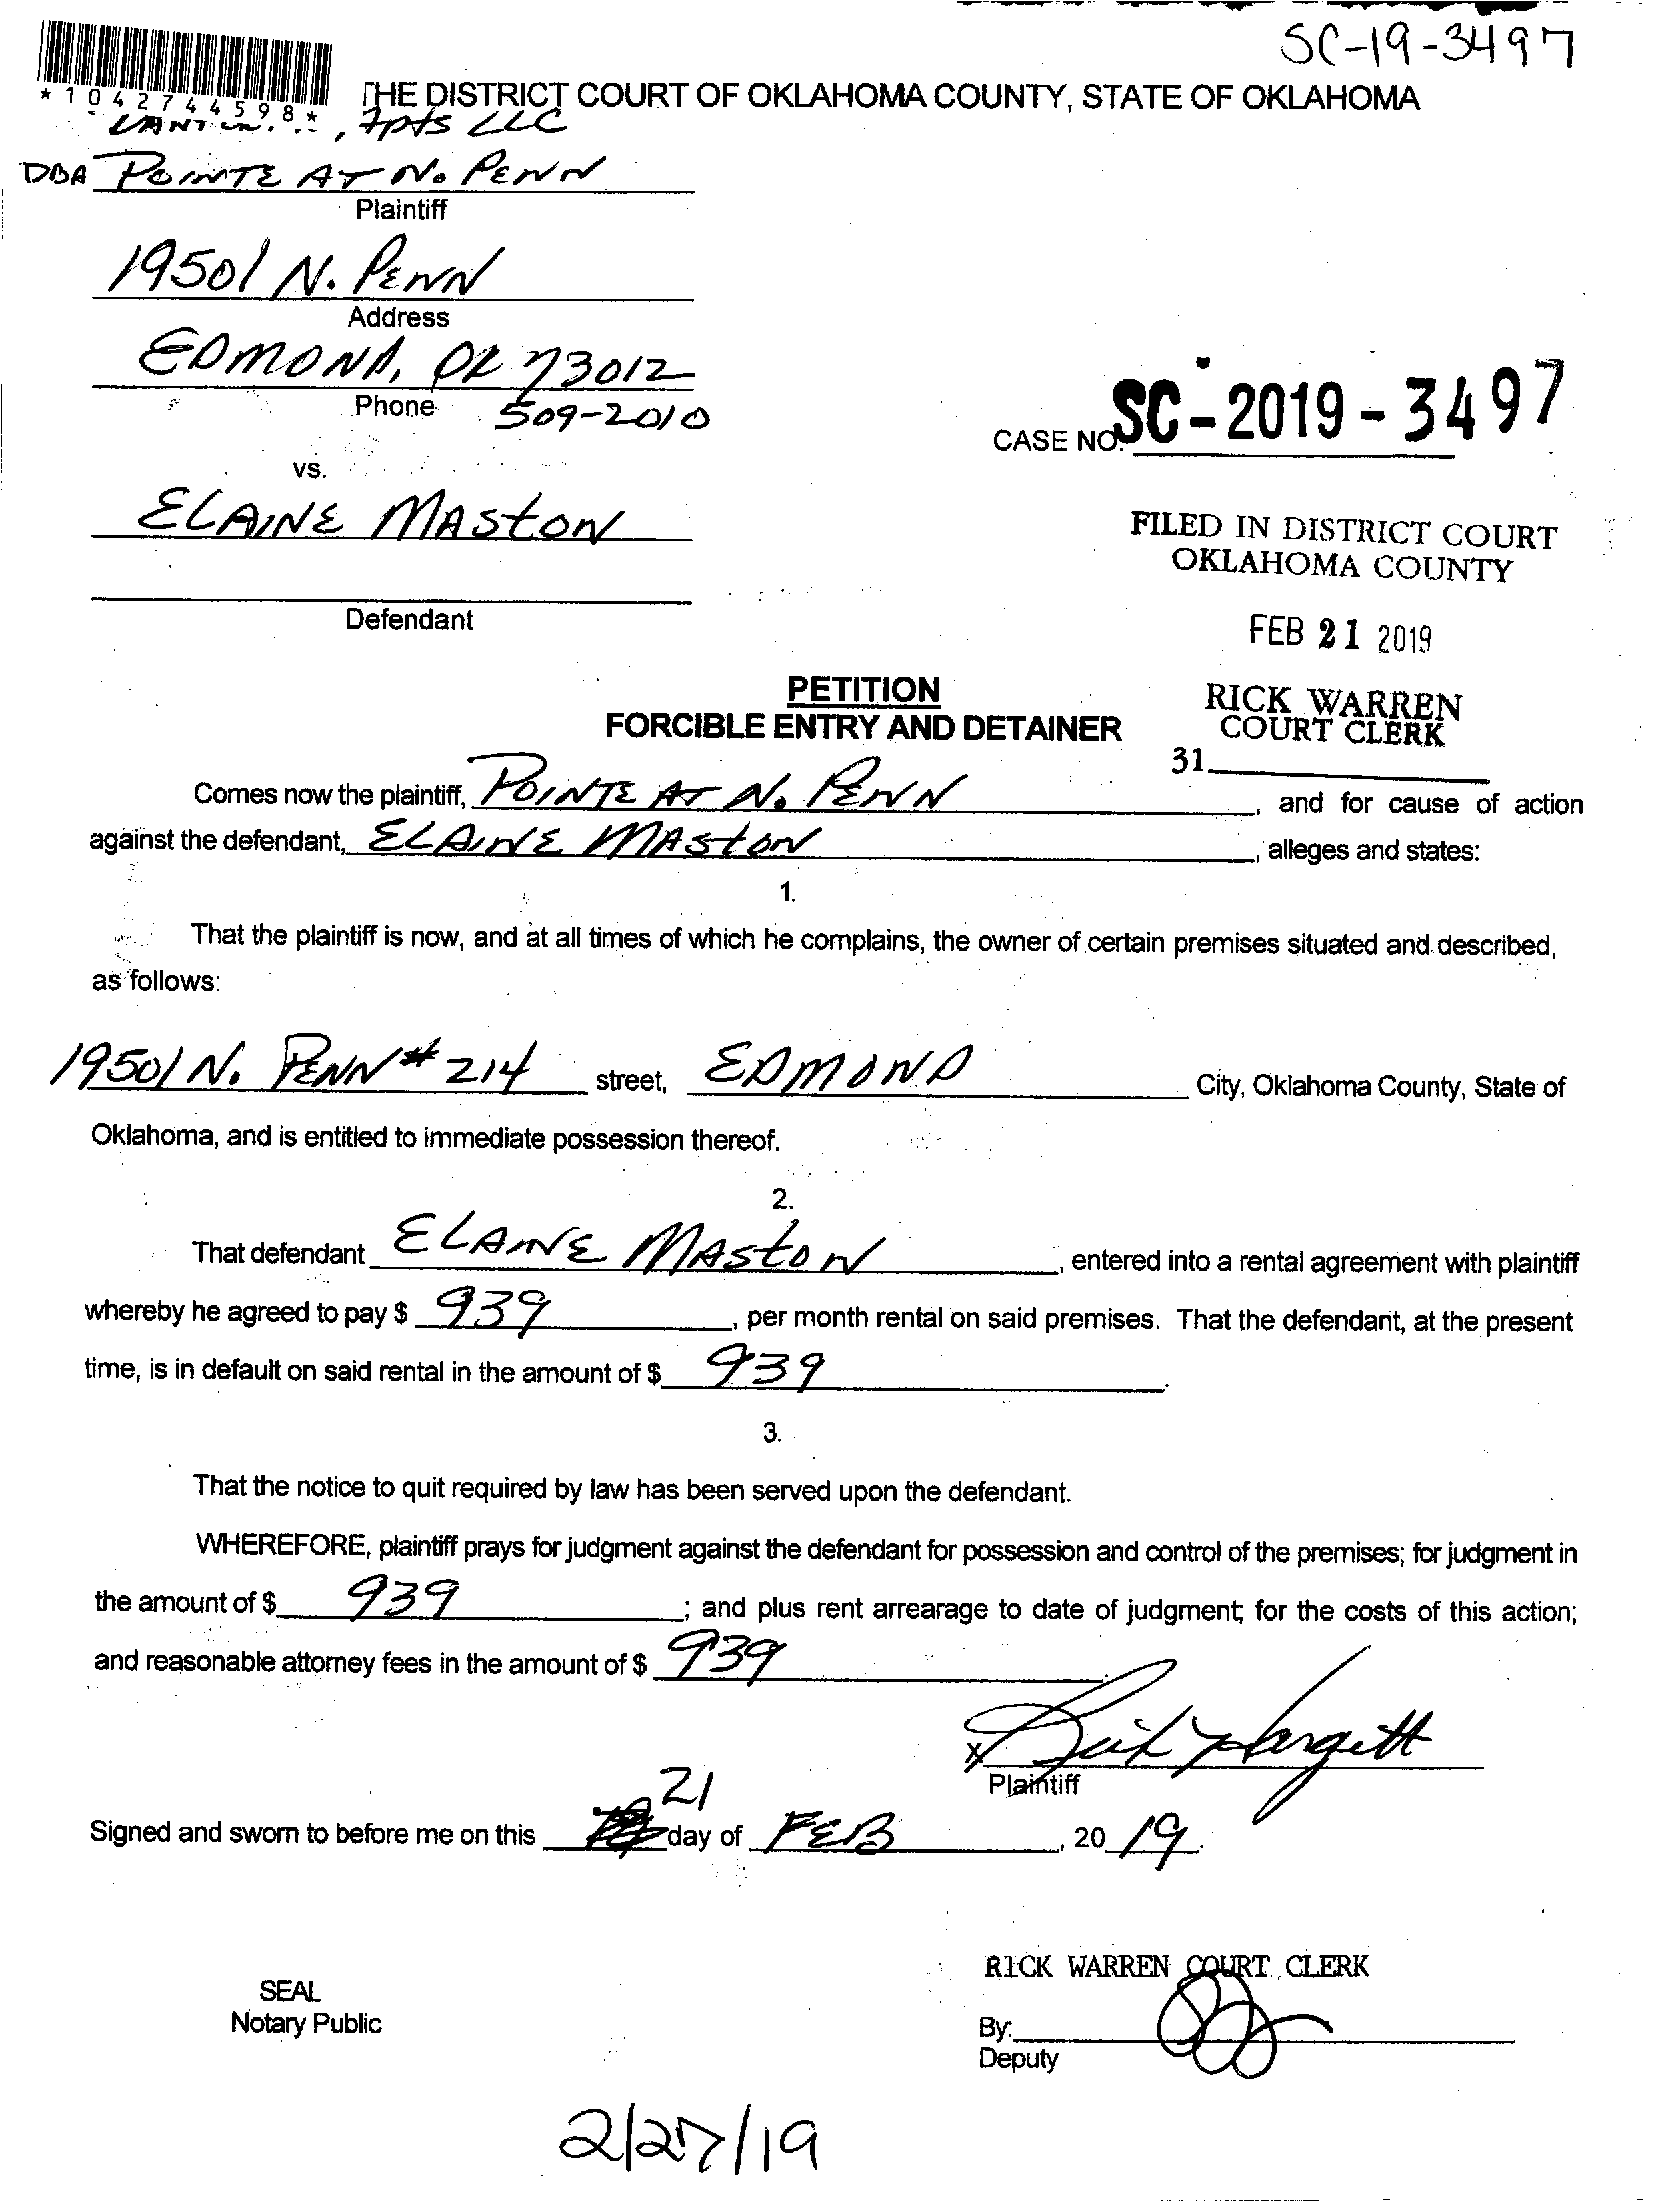 SC-19-3497
*1042744598*
THE DISTRICT COURT OF OKLAHOMA COUNTY, STATE OF OKLAHOMA
, Apts LLC
DBA POINTE AT N. PENN
Plaintiff
19501 N. PENN
Address
EDMOND, OK 73012
Phone 509-2010
CASE NO. SC-2019-3497
vs.
ELAINE MASTON
FILED IN DISTRICT COURT
OKLAHOMA COUNTY
Defendant
FEB 21 2019
PETITION
RICK WARREN
FORCIBLE ENTRY AND DETAINER
COURT CLERK
31
Comes now the plaintiff, POINTE AT N. PENN, and for cause of action
against the defendant, ELAINE MASTON, alleges and states:
1.
That the plaintiff is now, and at all times of which he complains, the owner of certain premises situated and described,
as follows:
19501 N. PENN # 214 street, EDMOND City, Oklahoma County, State of
Oklahoma, and is entitled to immediate possession thereof.
2.
That defendant ELAINE MASTON, entered into a rental agreement with plaintiff
whereby he agreed to pay $ 939, per month rental on said premises. That the defendant, at the present
time, is in default on said rental in the amount of $ 939.
3.
That the notice to quit required by law has been served upon the defendant.
WHEREFORE, plaintiff prays for judgment against the defendant for possession and control of the premises; for judgment in
the amount of $ 939; and plus rent arrearage to date of judgment; for the costs of this action;
and reasonable attorney fees in the amount of $ 939
x Hargett
Plaintiff
21
Signed and sworn to before me on this day of FEB, 20 19.
RICK WARREN COURT CLERK
SEAL
Notary Public
By:
Deputy
2/27/19